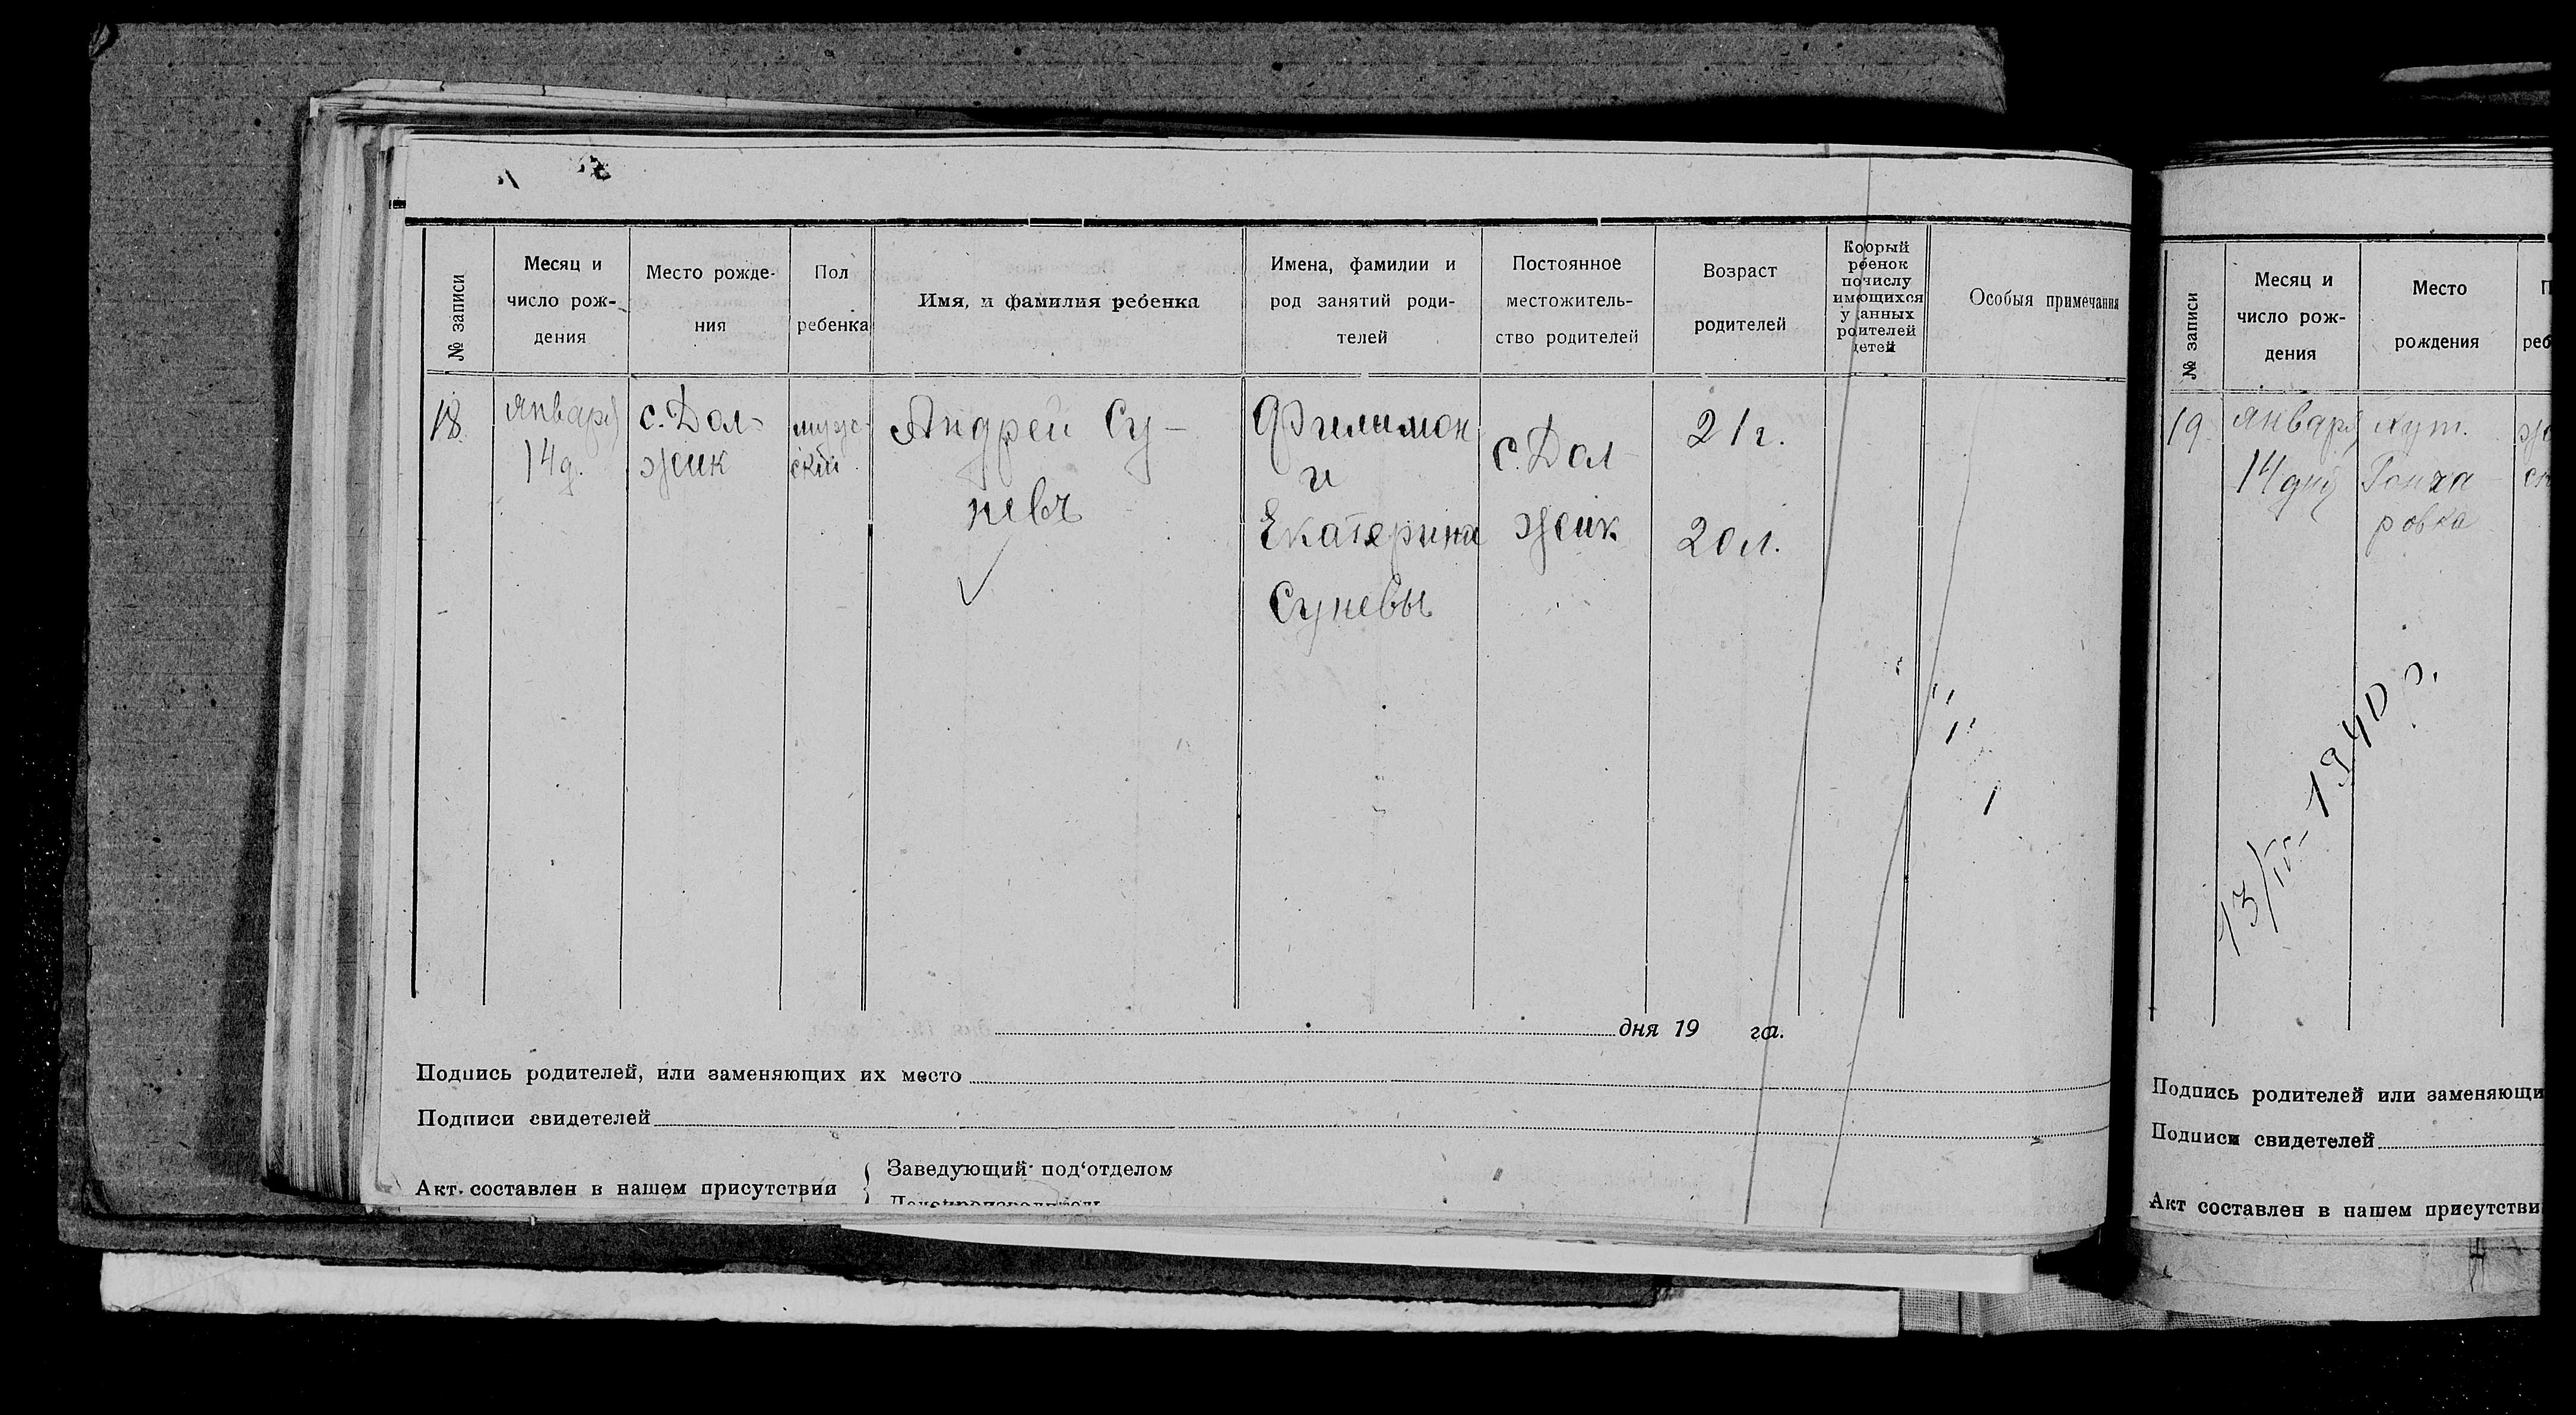 № записи
Месяц и
число рож-
дения
Место рожде-
ния
Пол
ребенка
Имя, и фамилия ребенка
Имена, фамилии и
род занятий роди-
телей
Постоянное
местожитель-
ство родителей
Возраст
родителей
Коорый
рбенок
по числу
имеющихся
у анных
роителей
детей
Особыя примечания
18
января
14д.
с. Дол-
жик
мужс-
ский
Андрей Су-
невъ
Филимон
и
Екатерина
Суневы
с. Дол-
жик
21г.
20л.
дня 19 га.
Подпись родителей, или заменяющих их место
Подписи свидетелей
Акт составлен в нашем присутствии
Заведующий под'отделом
Делопроизводитель
№ записи
Месяц и
число рож-
дения
Место
рождения
П
реб
19
января
14 дня
хут.
Гонча-
ровка
ж
ск
13/IV- 1940 г.
Подпись родителей или заменяющи
Подписи свидетелей
Акт составлен в нашем присутстви